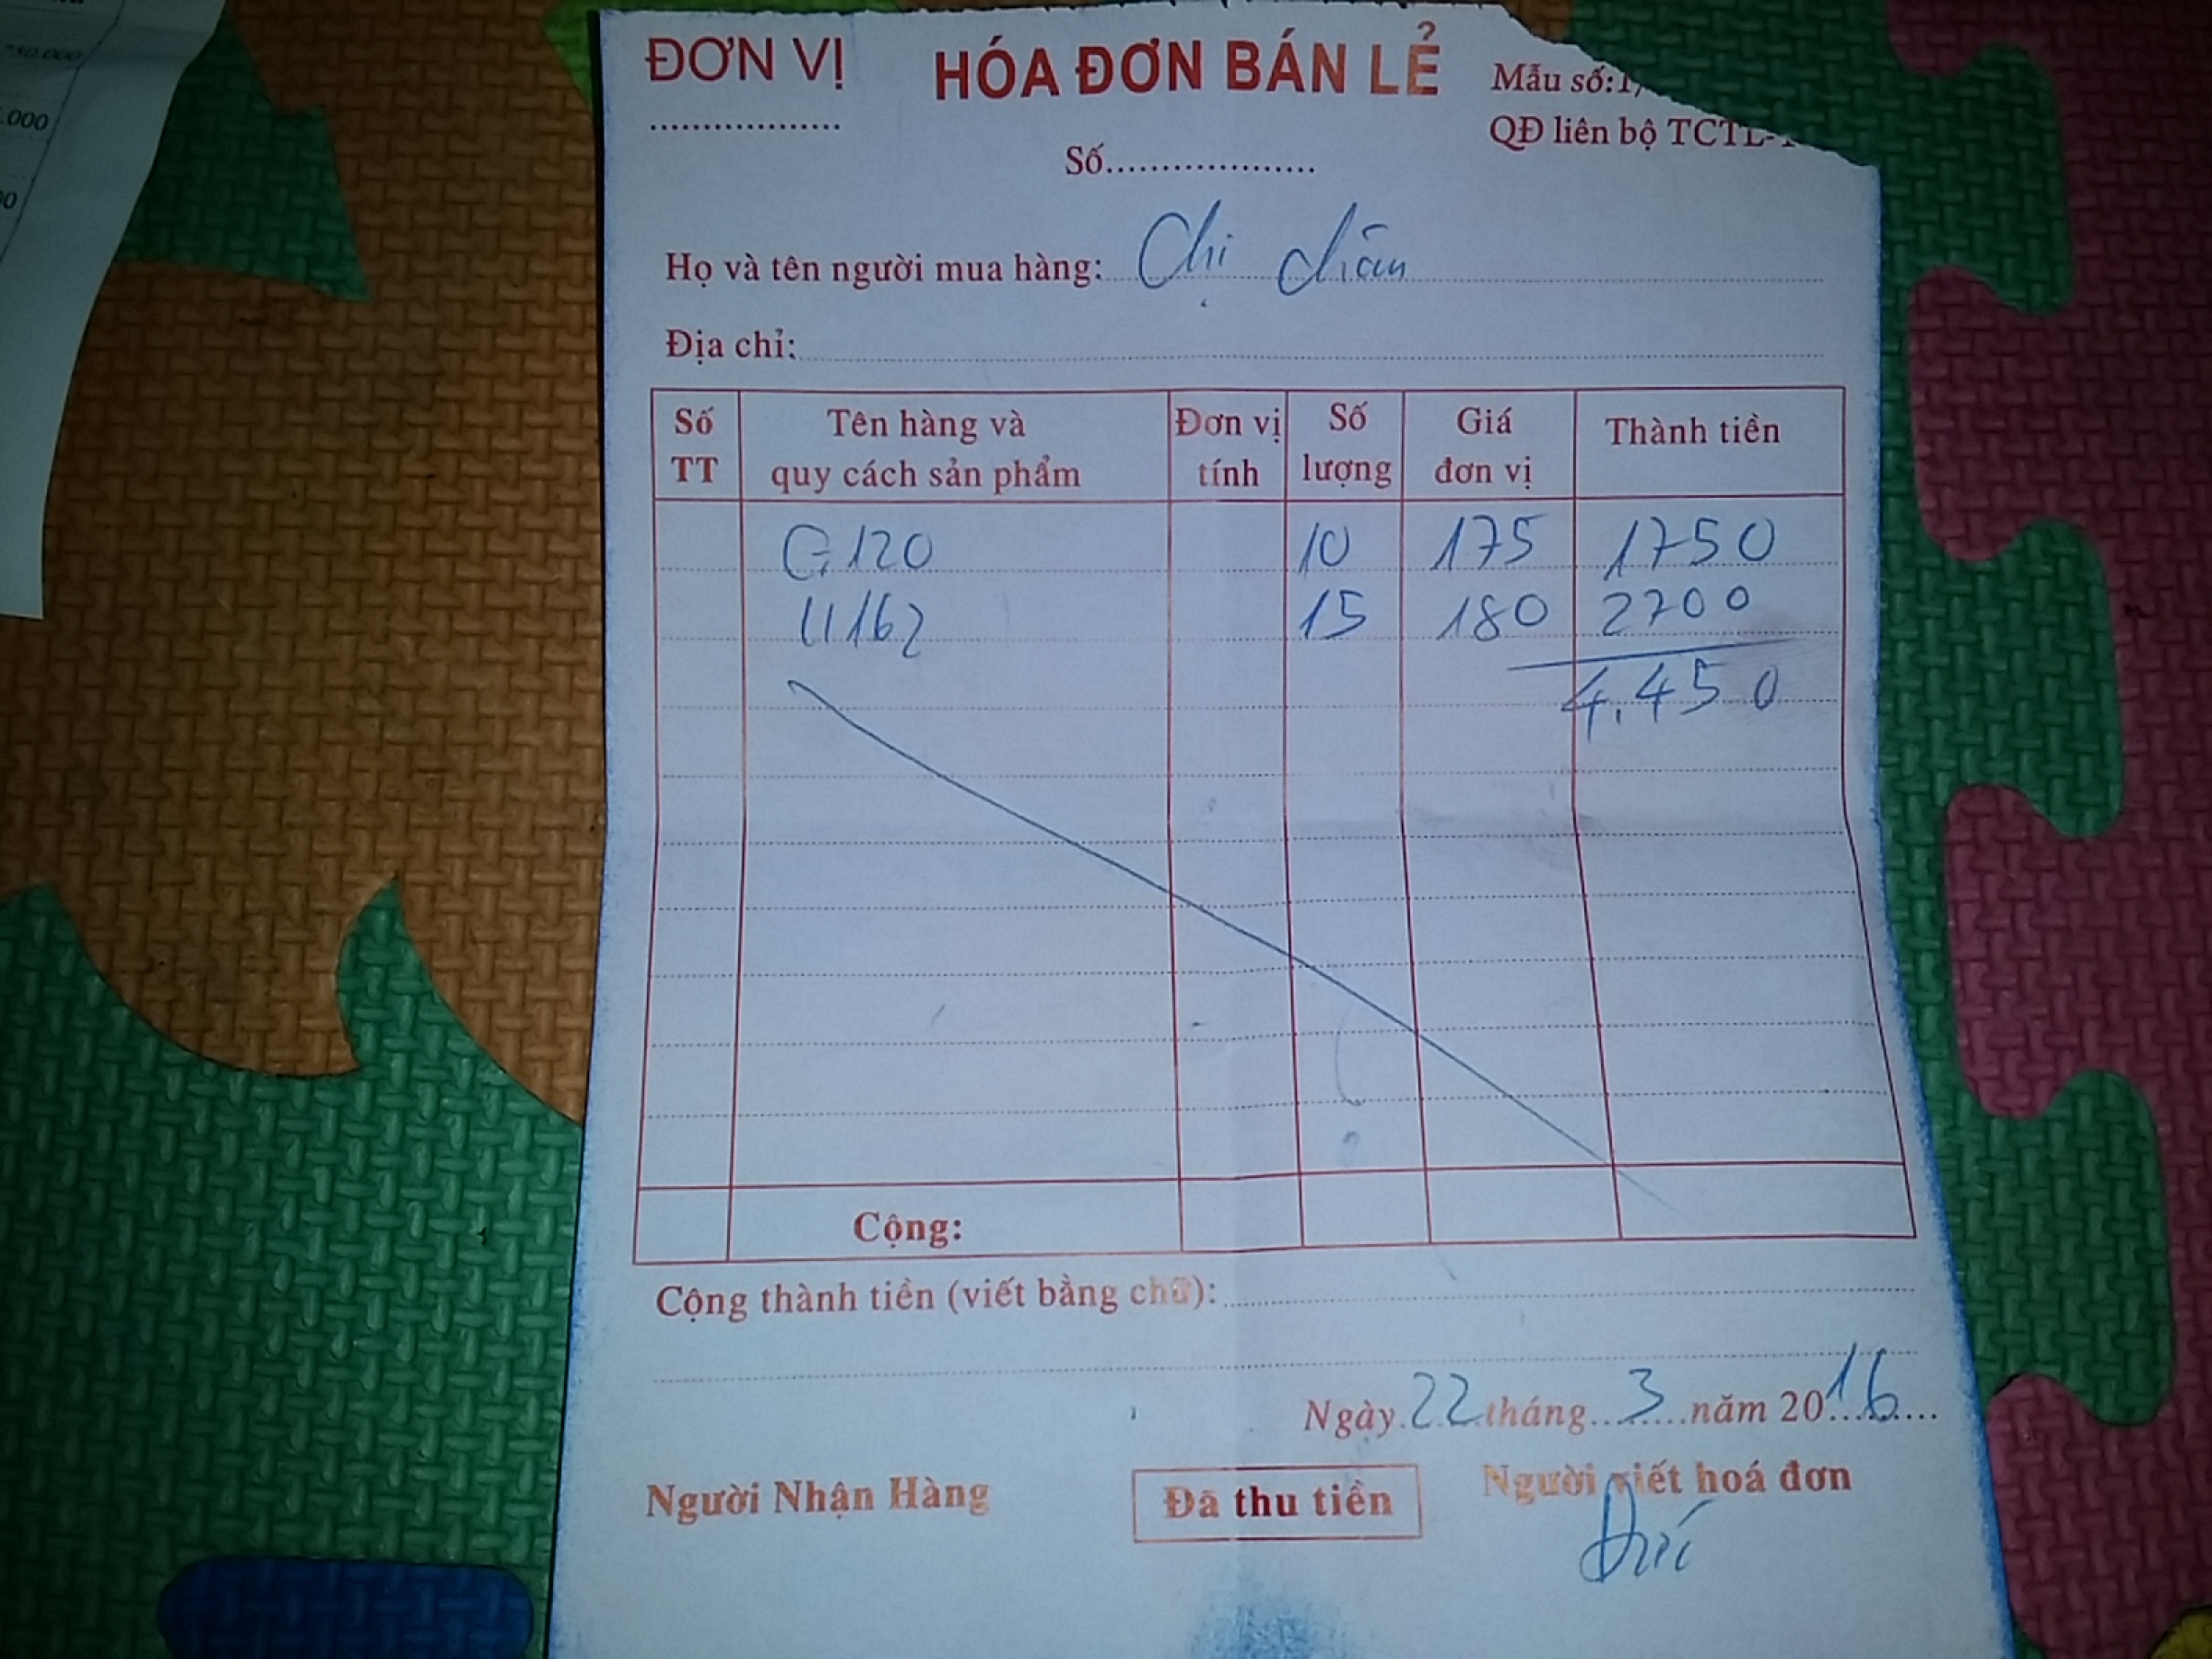 750.000
.000
00
ĐƠN VỊ
HÓA ĐƠN BÁN LẺ
Mẫu số:1/
..................
QĐ liên bộ TCTL-
Số...................
Họ và tên người mua hàng: Chị
Địa chỉ:
Số TT Tên hàng và quy cách sản phẩm Đơn vị tính Số lượng Giá đơn vị Thành tiền
120 10 175 1750
15 180 2700
4.450
Cộng:
Cộng thành tiền (viết bằng chữ):
Ngày 22 tháng 3 năm 2016
Người Nhận Hàng
Đã thu tiền
Người viết hoá đơn